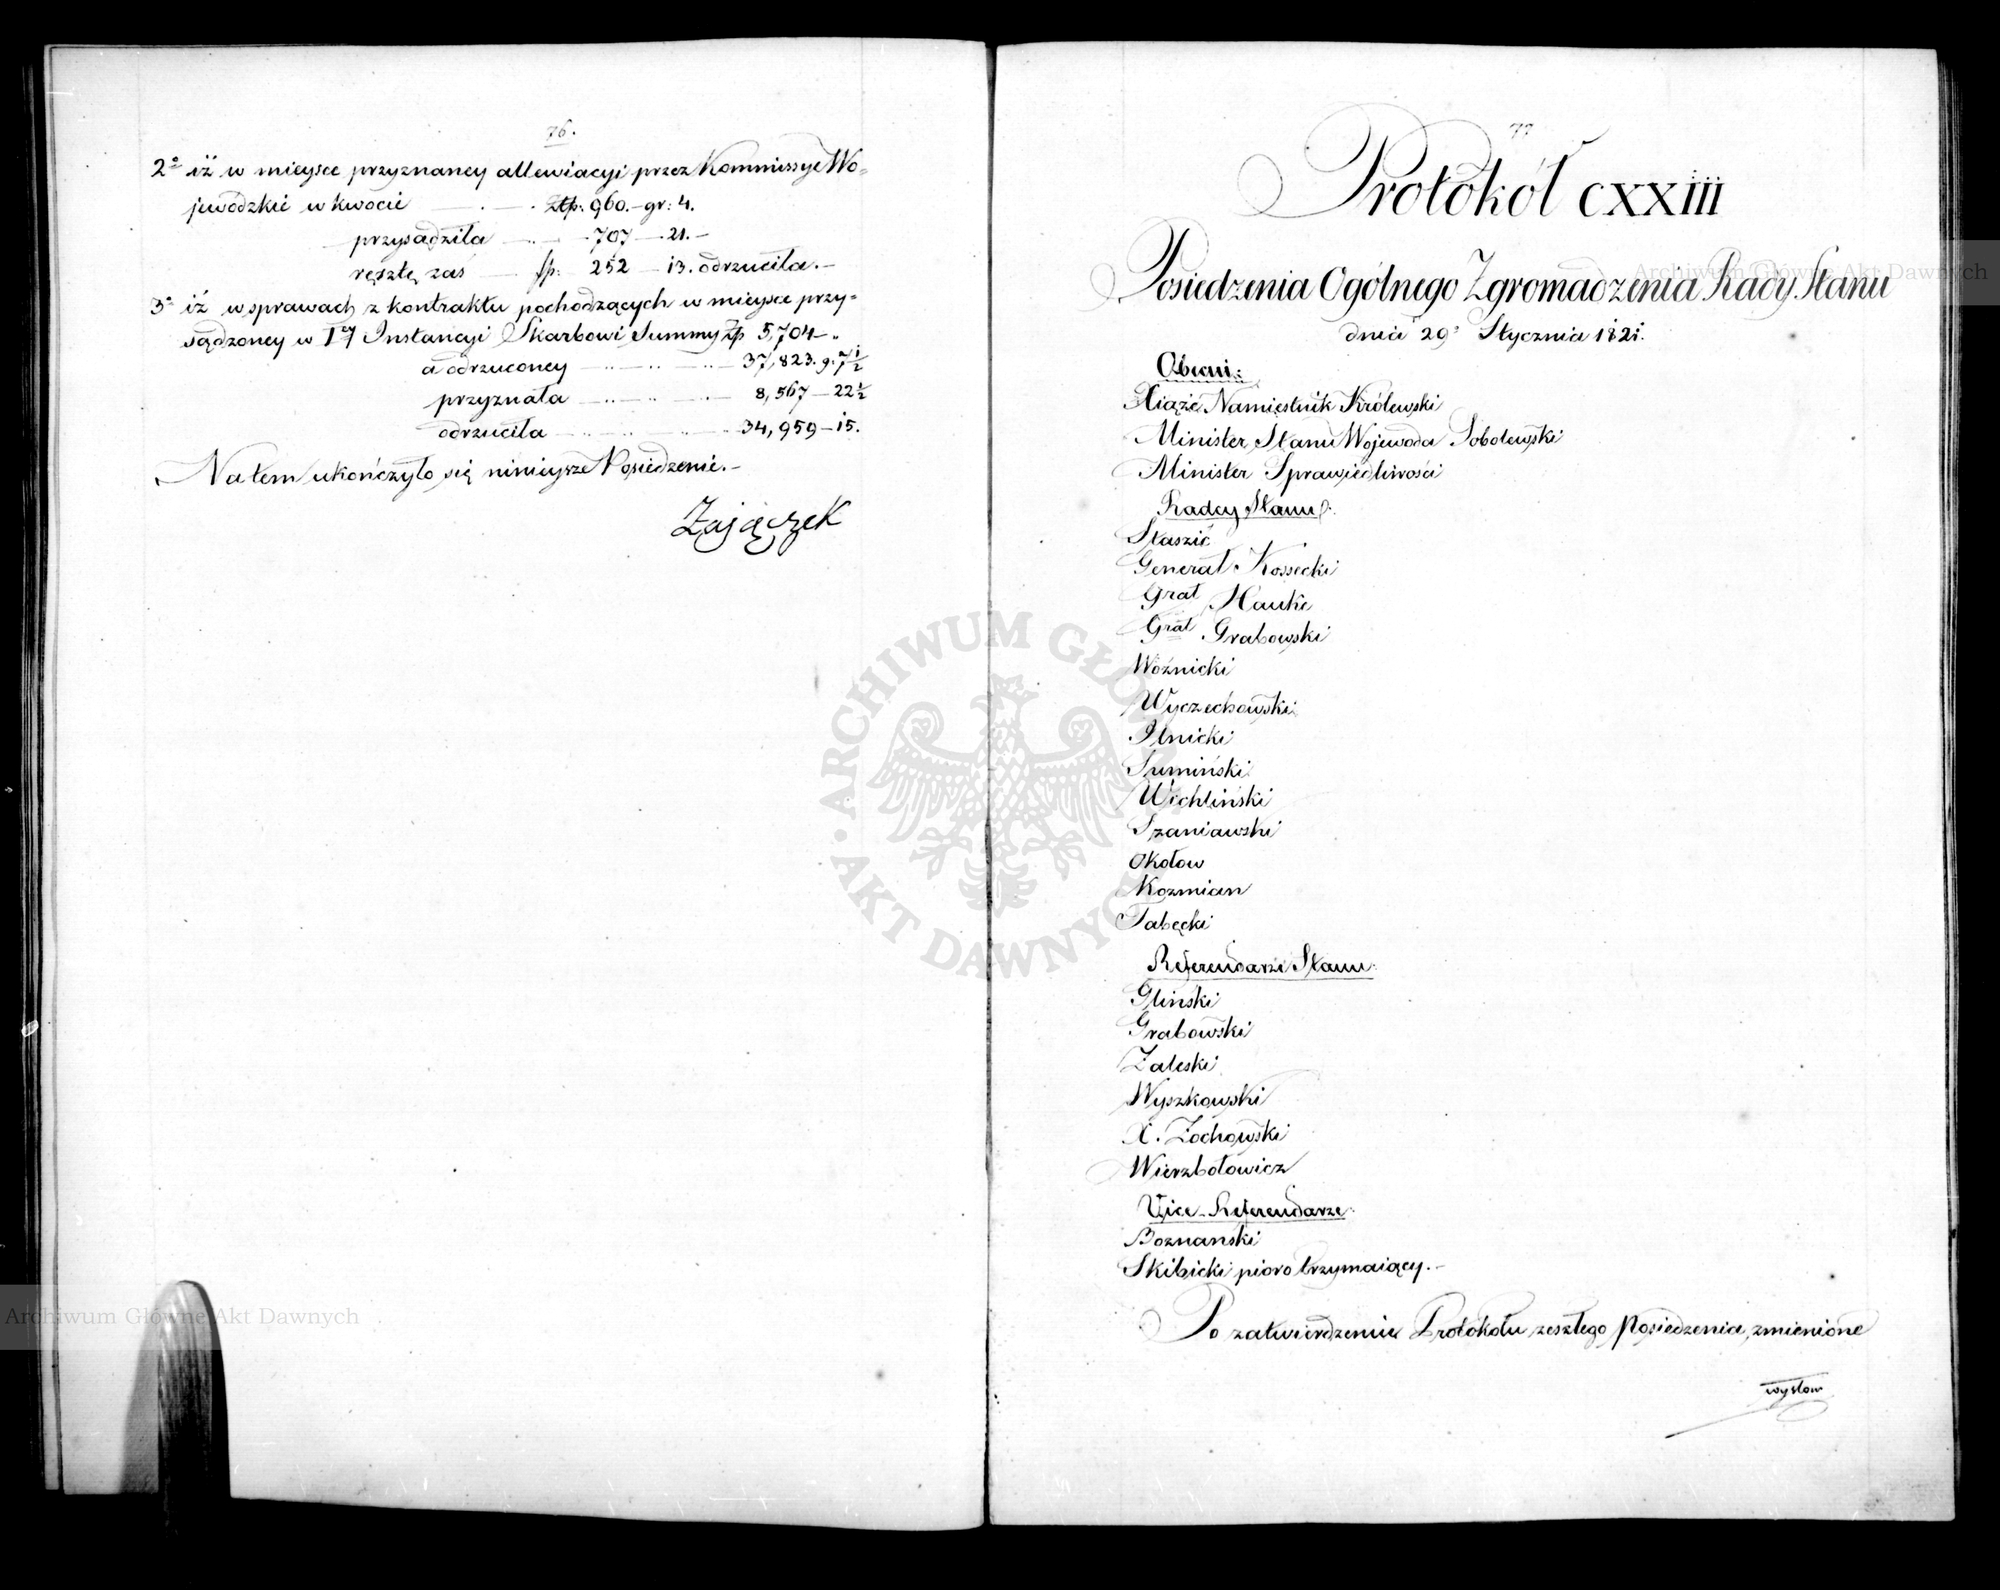 76.
2º iż w mieysce przyznaney allewiacyi przez Kommissye Wo-
jewódzkie w kwocie — . — . złp: 960.- gr: 4.
przysądziła — .. — . - 707 — 21. -
resztę zaś — fp: 252 — 13. odrzuciła. -
3º iż w sprawach z kontraktu pochodzących w mieysce przy-
sądzoney w Iey Instancyi Skarbowi Summy Złp 5,704 - "
a odrzuconey — .. — .. — .. — 37,823. g: 7½
przyznała — .. — .. — .. — 8,567 — 22½
odrzuciła — .. — .. — .. — 34,959 — 15.
Na tem ukończyło się ninieysze Posiedzenie. -
Zajączek
77
Protokół CXXIII
Posiedzenia Ogólnego Zgromadzenia Rady Stanu
dnia 29º Stycznia 1821.
Obecni:
Xiąże Namiestnik Królewski
Minister Stanu Wojewoda Sobolewski
Minister Sprawiedliwości
Radcy Stanu:
Staszic
Generał Kossecki
Grał Hauke
Grał Grabowski
Woźnicki
Wyczechowski
Ilnicki
Sumiński
Wichliński
Szaniawski
Okołow
Kozmian
Tabęcki
Referendarze Stanu:
Gliński
Grabowski
Zaleski
Wyszkowski
X. Żochowski
Wierzbołowicz
Vice-Referendarze:
Boznanski
Skibicki pioro trzymaiący. -
Po zatwierdzeniu Protokołu zeszłego Posiedzenia, zmienione
wysłow
Archiwum Główne Akt Dawnych
ARCHIWUM GŁÓWNE AKT DAWNYCH
Archiwum Główne Akt Dawnych